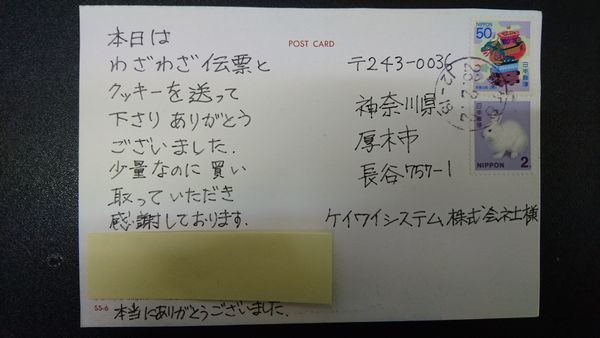 本日は
わざわざ伝票と
クッキーを送って
下さりありがとう
ございました.
少量なのに買い
取っていただき
感謝しております.
本当にありがとうございました.
55-6
POST CARD
〒243-0036
神奈川県
厚木市
長谷757-1
ケイワイシステム株式会社様
NIPPON
50
日本郵便
日本郵便
NIPPON
2
12-18